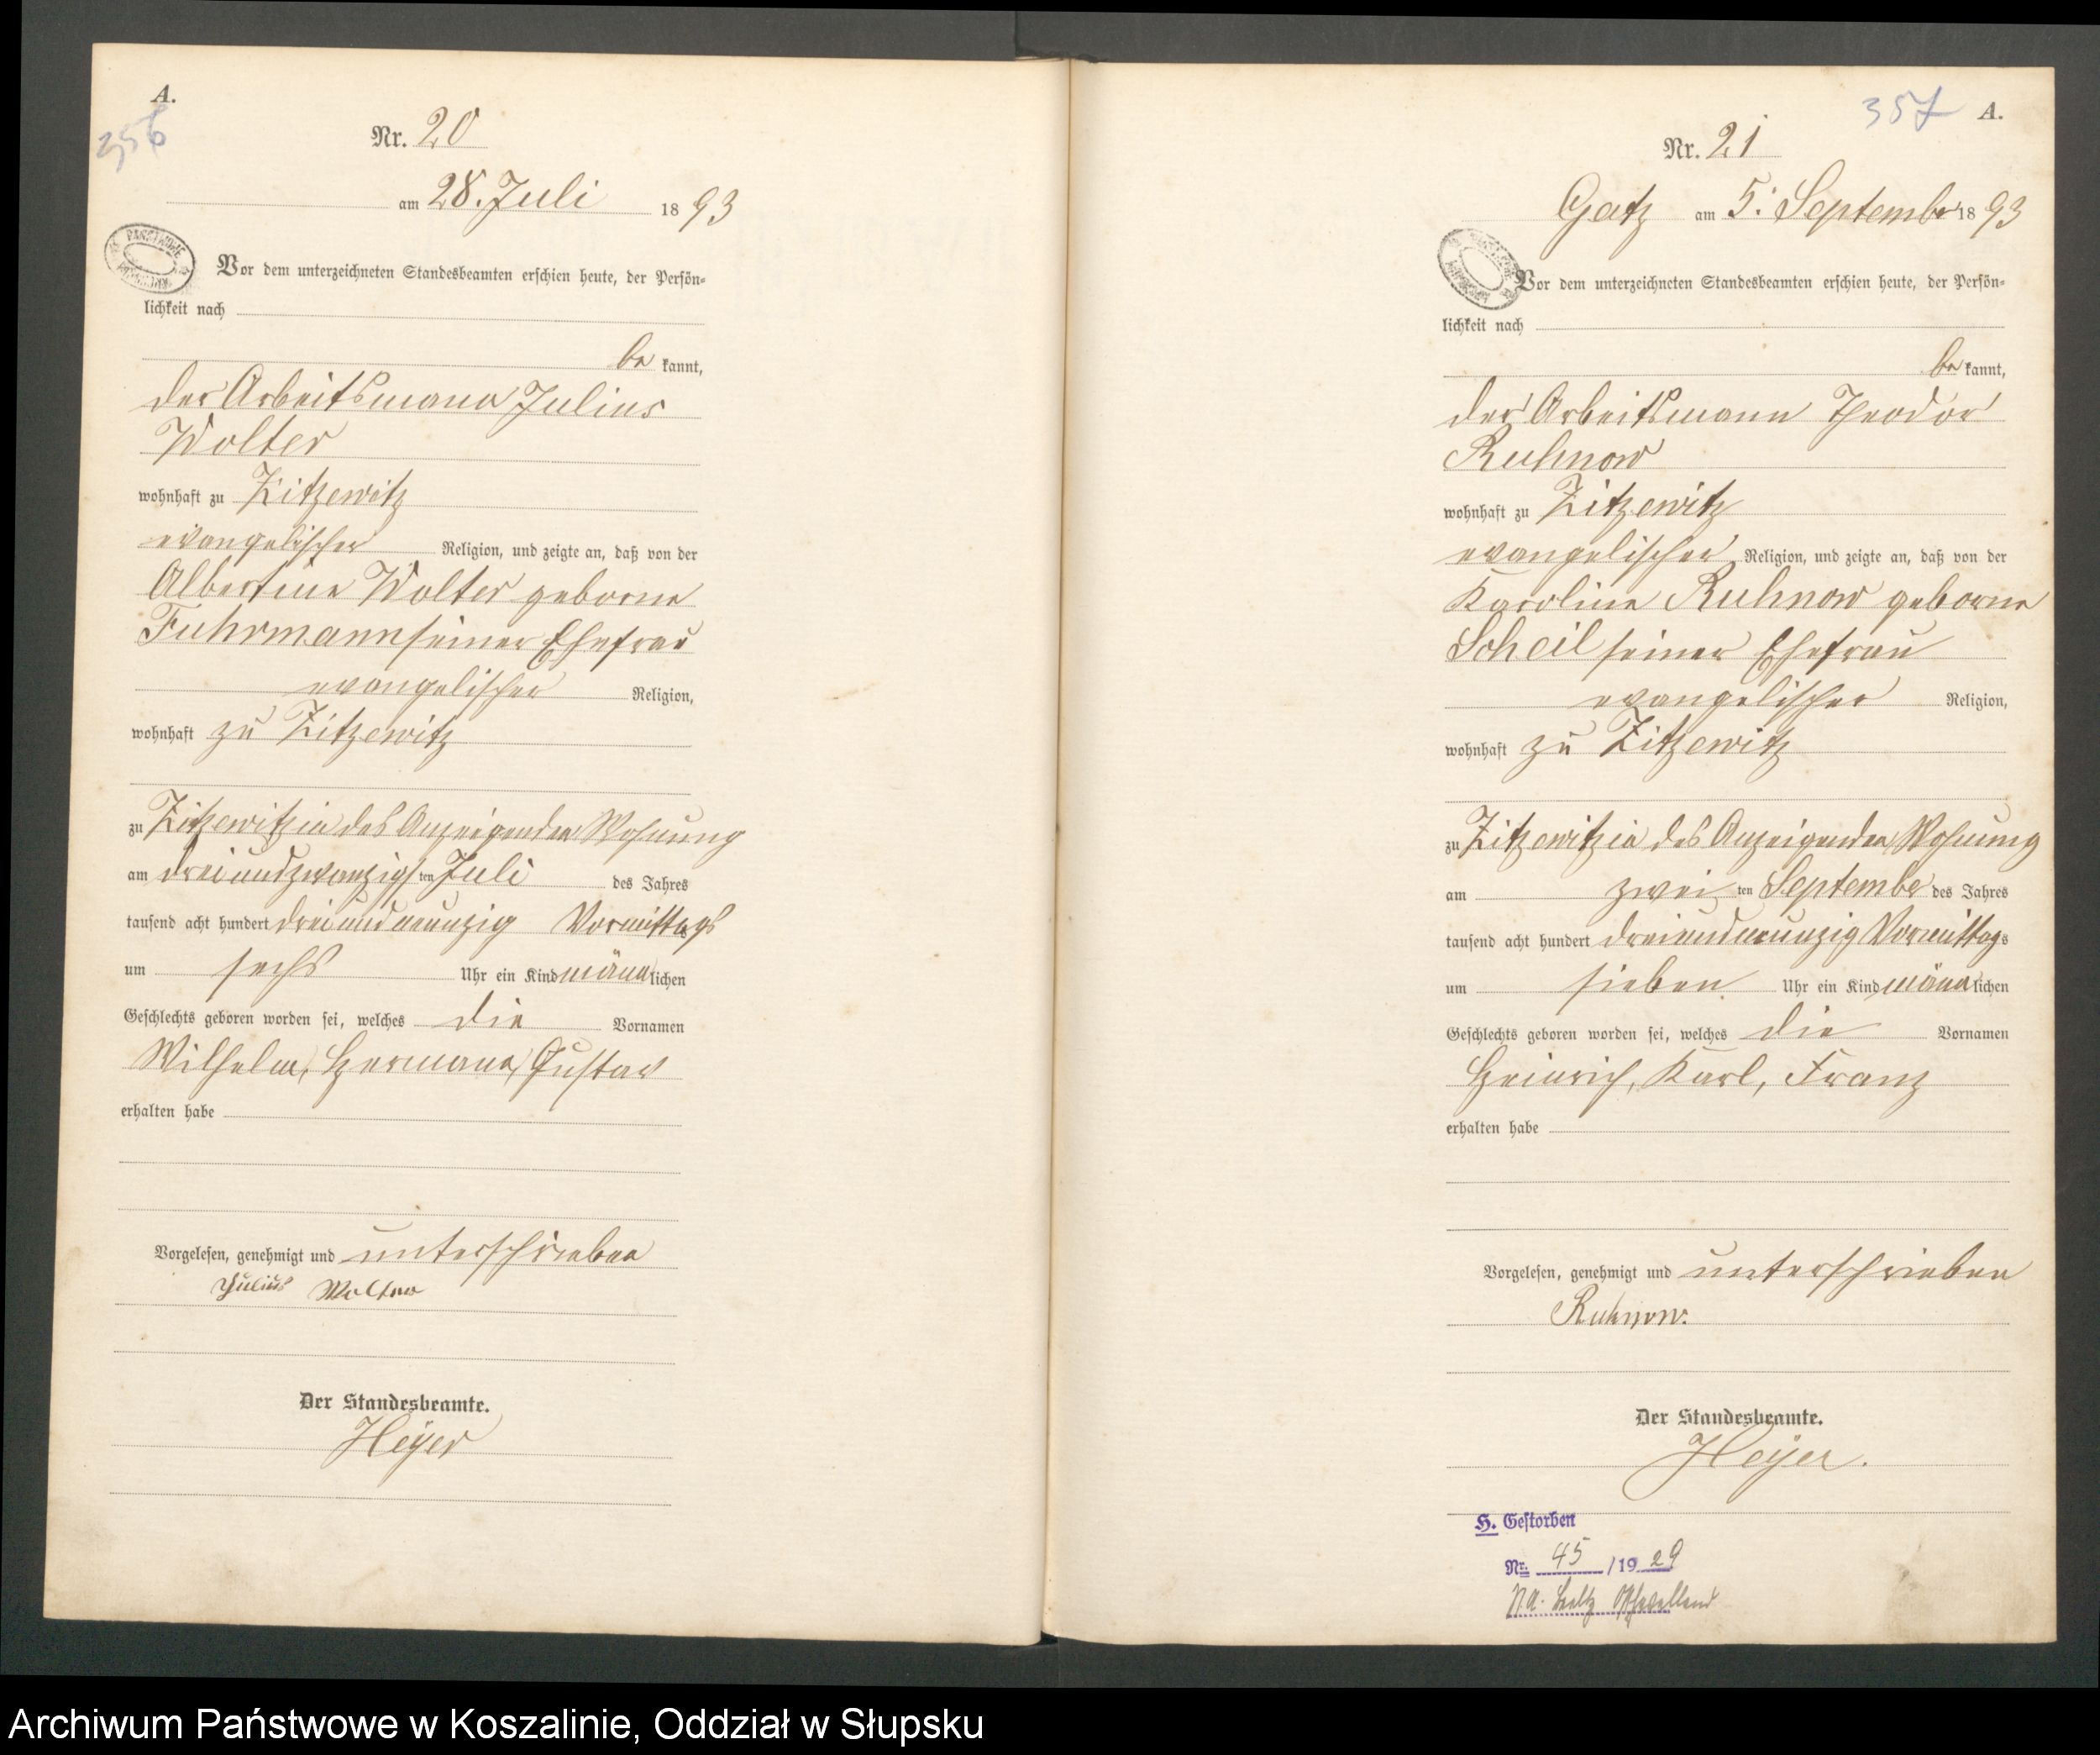 A.
356
Nr. 20
am 28. Juli 1893
Vor dem unterzeichneten Standesbeamten erschien heute, der Persön=
lichkeit nach
be kannt,
der Arbeitsmann Julius
Wolter
wohnhaft zu Zitzewitz
evangelischer Religion, und zeigte an, daß von der
Albertine Wolter geborne
Fuhrmann seiner Ehefrau
evangelischer Religion,
wohnhaft zu Zitzewitz
zu Zitzewitz in des Anzeigenden Wohnung
am dreiundzwanzigsten Juli des Jahres
tausend acht hundert dreiundneunzig Vormittags
um sechs Uhr ein Kind männlichen
Geschlechts geboren worden sei, welches die Vornamen
Wilhelm, Hermann, Gustav
erhalten habe
Vorgelesen, genehmigt und unterschrieben
Julius Wolter
Der Standesbeamte.
Heyer
357 A.
Nr. 21
Gatz am 5. September 1893
Vor dem unterzeichneten Standesbeamten erschien heute, der Persön=
lichkeit nach
be kannt,
der Arbeitsmann Theodor
Ruhnow
wohnhaft zu Zitzewitz
evangelischer Religion, und zeigte an, daß von der
Karoline Ruhnow geborne
Scheil seiner Ehefrau
evangelischer Religion,
wohnhaft zu Zitzewitz
zu Zitzewitz in des Anzeigenden Wohnung
am zwei ten September des Jahres
tausend acht hundert dreiundneunzig Vormittags
um sieben Uhr ein Kind männlichen
Geschlechts geboren worden sei, welches die Vornamen
Heinrich, Karl, Franz
erhalten habe
Vorgelesen, genehmigt und unterschrieben
Ruhnow.
Der Standesbeamte.
Heyer.
H. Gestorben
Nr. 45 /1929
Archiwum Państwowe w Koszalinie, Oddział w Słupsku